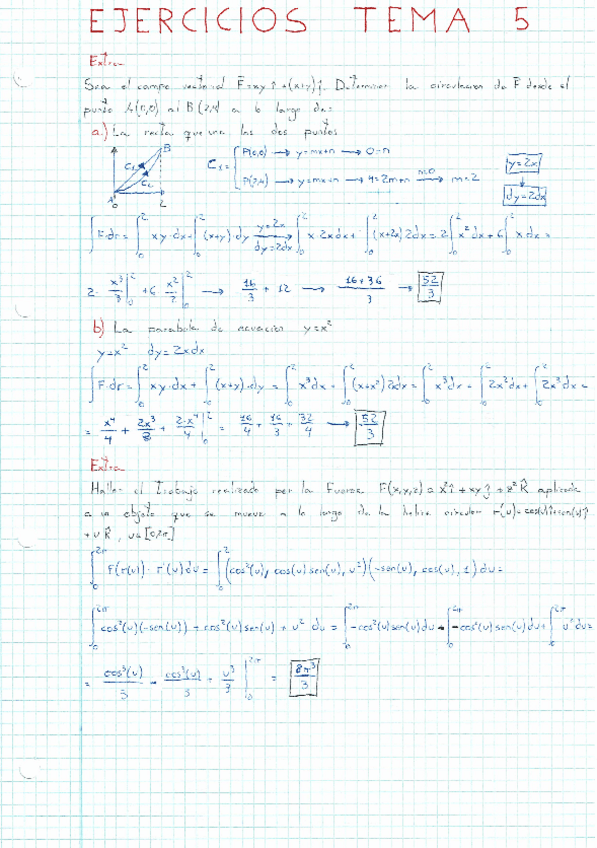 EJERCICIOS TEMA 5
Extra
Sea el campo vectorial F=xy î+(x+y)ĵ. Determinar la circulación de F desde el
punto A(0,0) al B(2,4) a lo largo de:
a.) La recta que une los dos puntos
B
C₁
C₂
A
0
2
C₁= { P(0,0) → y=mx+n → 0=n
P(2,4) → y=mx+n → 4=2m+n →(n=0) m=2
y=2x
dy=2dx
∫F·dr = ∫₀² xy·dx+∫(x+y)·dy →(y=2x, dy=2dx) ∫₀² x·2xdx+∫₀²(x+2x)2dx=2∫₀²x²dx+6∫₀²x dx=
2·x³/3|₀² +6 x²/2|₀² → 16/3 + 12 → 16+36/3 → 52/3
b) La parabola de ecuación y=x²
y=x² dy=2xdx
∫F·dr=∫₀² xy·dx+∫₀²(x+y)·dy = ∫₀² x³dx+∫₀²(x+x²)2xdx=∫₀² x³dx+∫₀² 2x²dx+∫₀² 2x³dx=
= x⁴/4 + 2x³/3 + 2·x⁴/4 |₀² = 16/4 + 16/3 + 32/4 → 52/3
Extra
Hallar el Trabajo realizado por la Fuerza F(x,y,z)=x²î+xyĵ+z²k̂ aplicada
a un objeto que se mueve a lo largo de la hélice circular r(u)=cos(u)î+sen(u)ĵ
+uk̂, u∈[0,2π]
∫₀^2π F(r(u))·r'(u)du=∫₀²(cos²(u), cos(u)sen(u), u²)(-sen(u), cos(u), 1)du=
∫₀^2π cos²(u)(-sen(u))+cos²(u)sen(u)+u² du=∫₀^2π -cos²(u)sen(u)du-∫₀^2π -cos²(u)sen(u)du+∫₀^2π u²du=
= cos³(u)/3 - cos³(u)/3 + u³/3 |₀^2π = 8π³/3